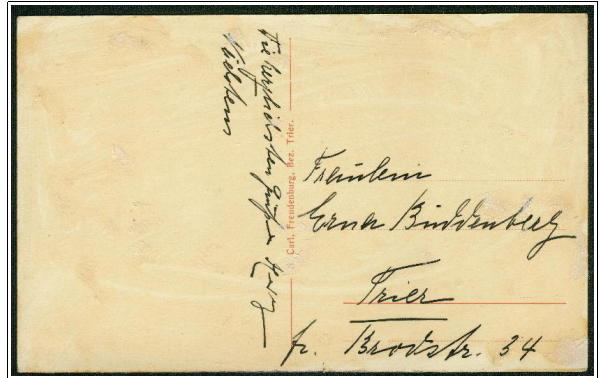 Die herzlichsten Grüße
Nächstens
Carl, Freudenburg, Bez. Trier.
Fräulein
Erna Buddenberg
Trier
fr. Brodstr. 34